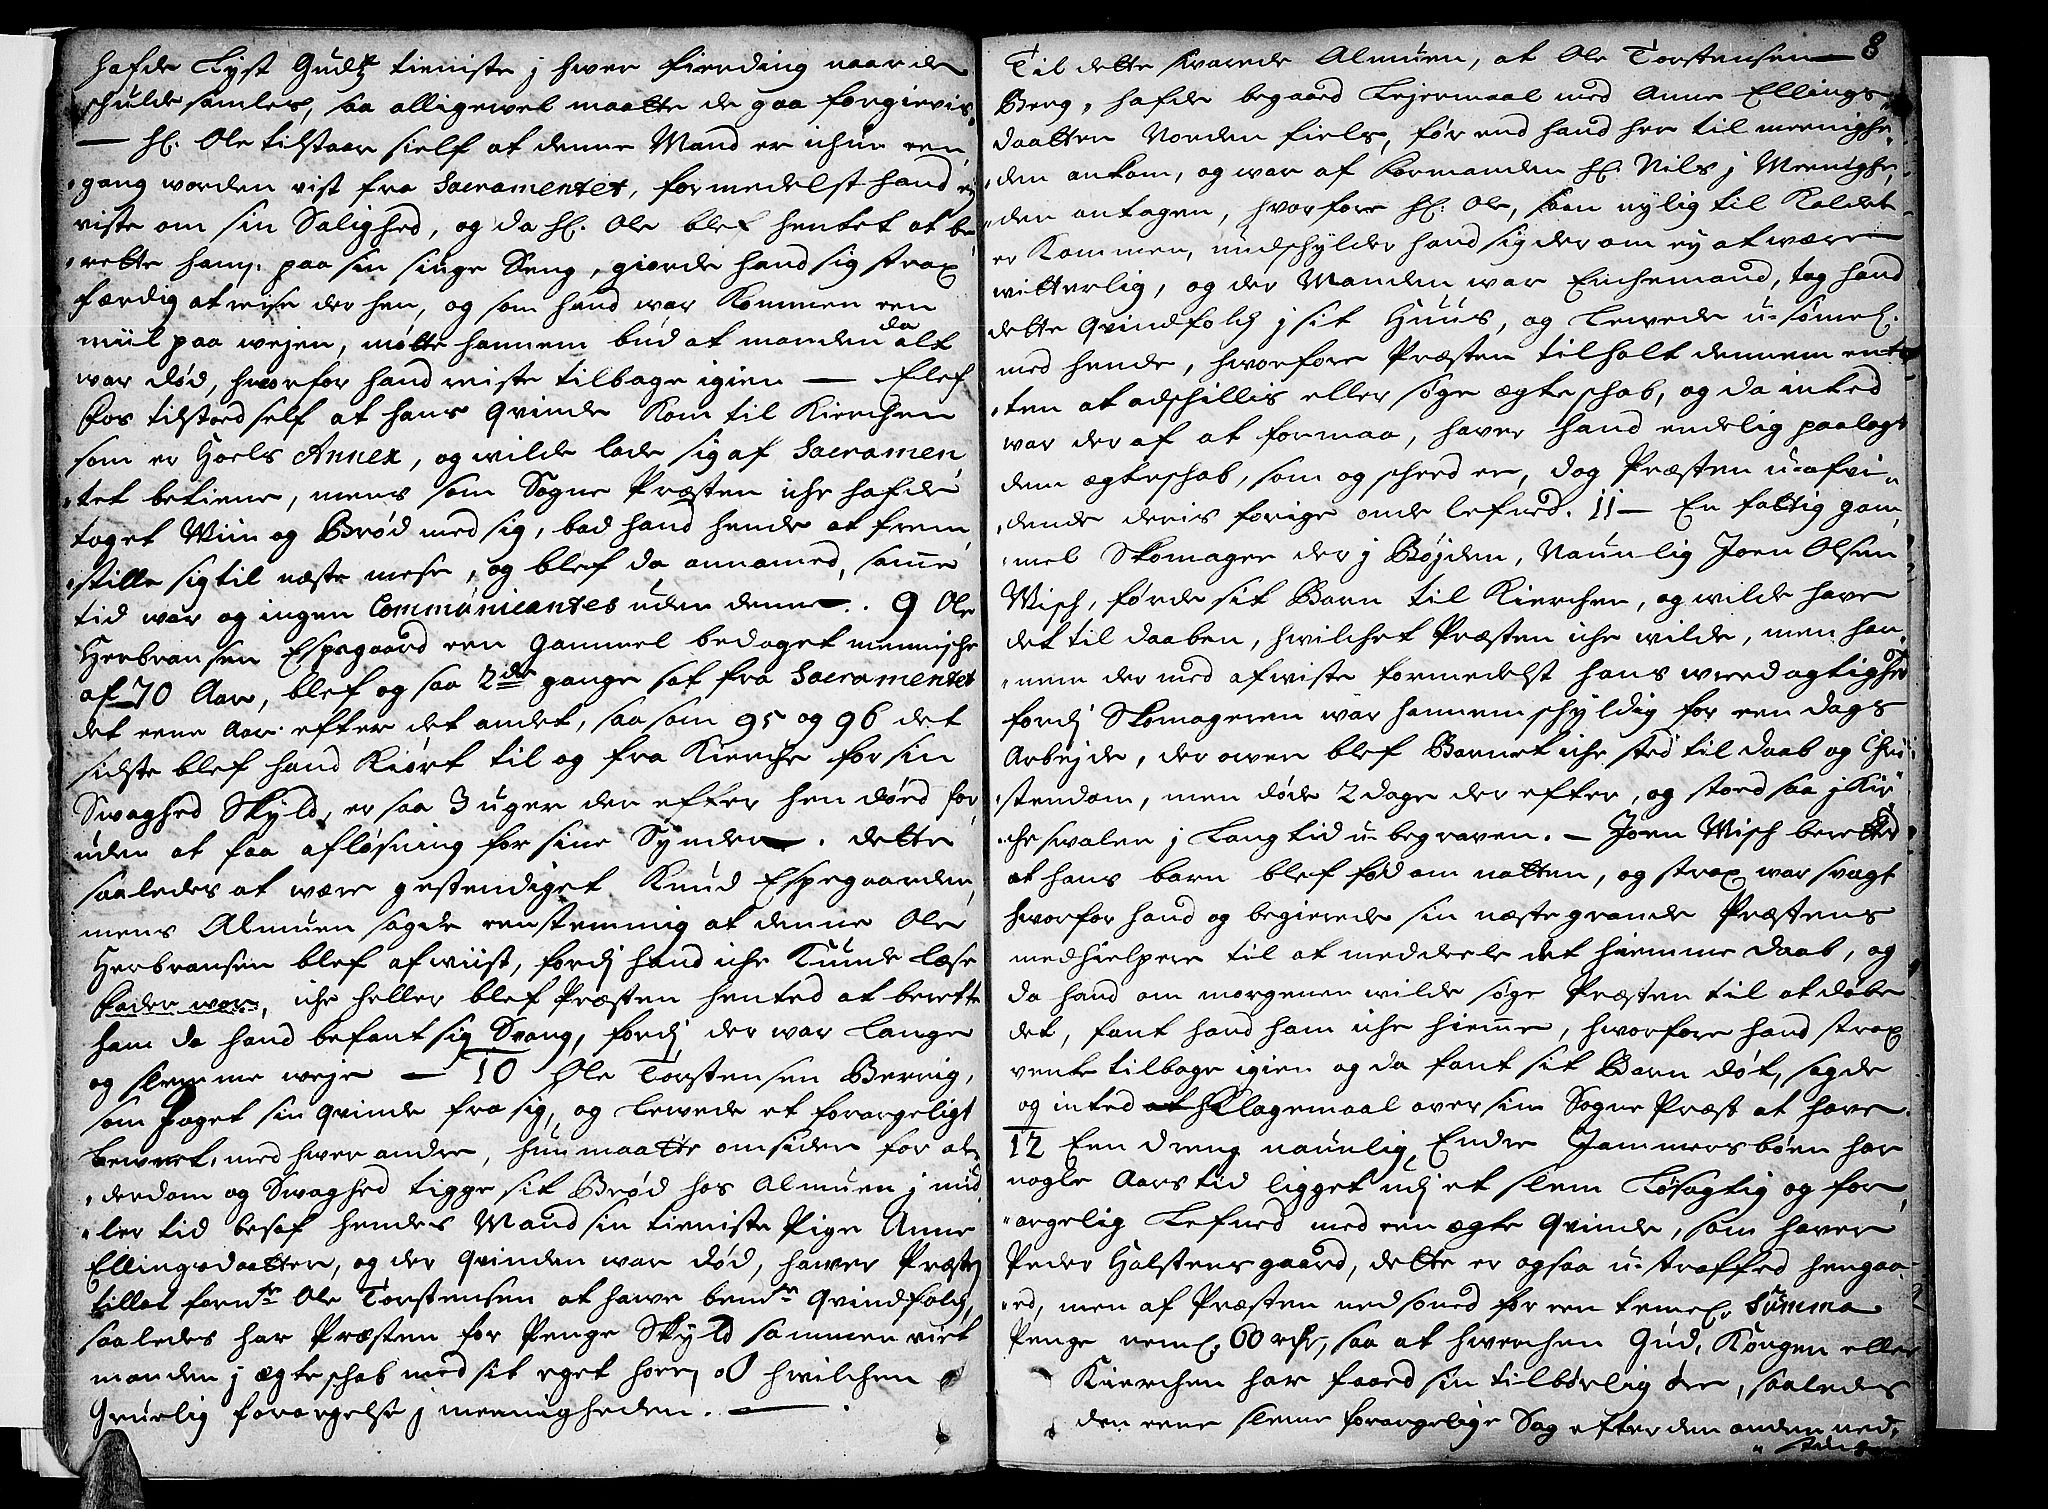 hafde Lyst Gudtz tieniste j hwer fierding naar de
schulde samles, saa alligewel maatte de gaa forgiewis.
— Hl. Ole tilstaar sielf at denne Mand er ichun een
gang worden vist fra Sacramentet, formedelst hand ej
viste om sin Salighed, og da Hl. Ole blef hentet at be„
„rette ham, paa sin siuge Seng, giorde hand sig strax
færdig at reise der hen, og som hand war Kommen een
miil paa wejen, møtte hannem bud at manden da alt
war død, hworfor hand reiste tilbage igien — Elef
Fos tilstoed self at hans Qvinde Kom til Kierchen
som er Hoels Annex, og wilde lade sig af Sacramen„
„tet betiene, mens som Sogne Præsten iche hafde
taget Wiin og Brød med sig, bad hand hende at frem„
„stille sig til næste mese, og blef da annamed, samme
tid war og ingen Communicantes uden denne. 9 Ole
Herbransen Espegaard een Gammel bedaget mennische
af 70 Aar, blef og saa 2de gange sat fra Sacramentet
det eene Aar efter det andet, saasom 95 og 96 det
sidste blef hand Kiørt til og fra Kierche for sin
Swaghed Skyld, er saa 3 uger der efter hen døed for„
uden at faa afløsning for sine Synder. dette
saaledes at være gestendiget Knud Espegaarden,
mens Almuen sagde eenstemmig at denne Ole
Herbransen blef afwiist, fordj hand iche Kunde læse
Fader wor, iche heller blef Præsten hented at berette
ham da hand befant sig Svang, fordj der war lange
og slemme weje — 10 Ole Torstensen Berrig,
som Jaget sin Qvinde fra sig, og Lewede et forargeligt
Lewnet, med hwer andre, hun maatte omsider for al„
„derdom og Swaghed tigge sit Brød hos Almuen j mid„
„ler tid besof hendes Mand sin tieniste Pige Anne
Ellingsdaatter, og der Qvinden war død, hawer Præsten
tillat fornte Ole Torstensen at hawe bemte Qvindfolch,
saaledes har Præsten for Penge Skyld sammen viet
manden j ægteschab med sit eget hore, til hwilchen
Gruelig forargelse j meenigheden. —
8
Til dette swarede Almuen, at Ole Torstensen —
Berg, hafde begaaed Lejermaal med Anne Ellings„
daatter Norden fiels, før end hand her til meenighe„
„den ankom, og war af Formanden Hl. Nils j Meenighe„
„den antagen, hworfore Hl. Ole, som nylig til Kaldet
er Kommen, undschylder hand sig der om ey at wære
witterlig, og der Manden war Enchemand, tog hand
dette Qvindfolch j sit Huus, og Lewede u-sømel.
med hende, hworfore Præsten tilholt dennem ent„
„ten at adschillis eller søge ægteschab, og da inted
war der af at formaa, haver hand endelig paalagt
dem ægteschab, som og scheed er, dog Præsten u-afvi„
„dende deris forige onde lefned. 11 — En fattig gam„
„mel Skomager der j Bøjden, Naunlig Joen Olsen
Wisch, førde sit Barn til Kierchen, og wilde have
det til daaben, hwilchet Præsten iche wilde, men han„
„nem der med afwiste formedelst hans wredagtighed
fordj Skomageren war hannem schyldig for een dags
Arbejde, der ower blef Barnet iche sted til daab og Chri„
„stendom, men døde 2 dage der efter, og stoed saa j Kir„
„che swalen j Lang tid u-begraven. — Joen Wisch beretted
at hans barn blef fød om natten, og strax war svagt
hworfor hand og begierede sin næste grande Præstens
medhielpere til at meddeele det hiemme daab, og
da hand om morgenen wilde søge Præsten til at døbe
det, fant hand ham iche hiemme, hworfore hand strax
vente tilbage igien og da fant sit Barn døt, sagde
og inted at Klagemaal over sin Sogne Præst at have.
12 Een dreng naunlig Endre Jammersbøen har
nogle Aars tid ligget udj et slem Løsagtig og for„
„argelig Lefned med een ægte Qvinde, som haver
Peder Halstensgaard, dette er ogsaa u-straffed hengaa„
„ed, men af Præsten nedsoned for een temel. Summa
Penge neml. 60 rdr, saa at hwerchen Gud, Kongen eller
Kierchen har faaed sin tilbørlig ære, saaledes
den eene slemme forargelige Sag efter den anden ned„